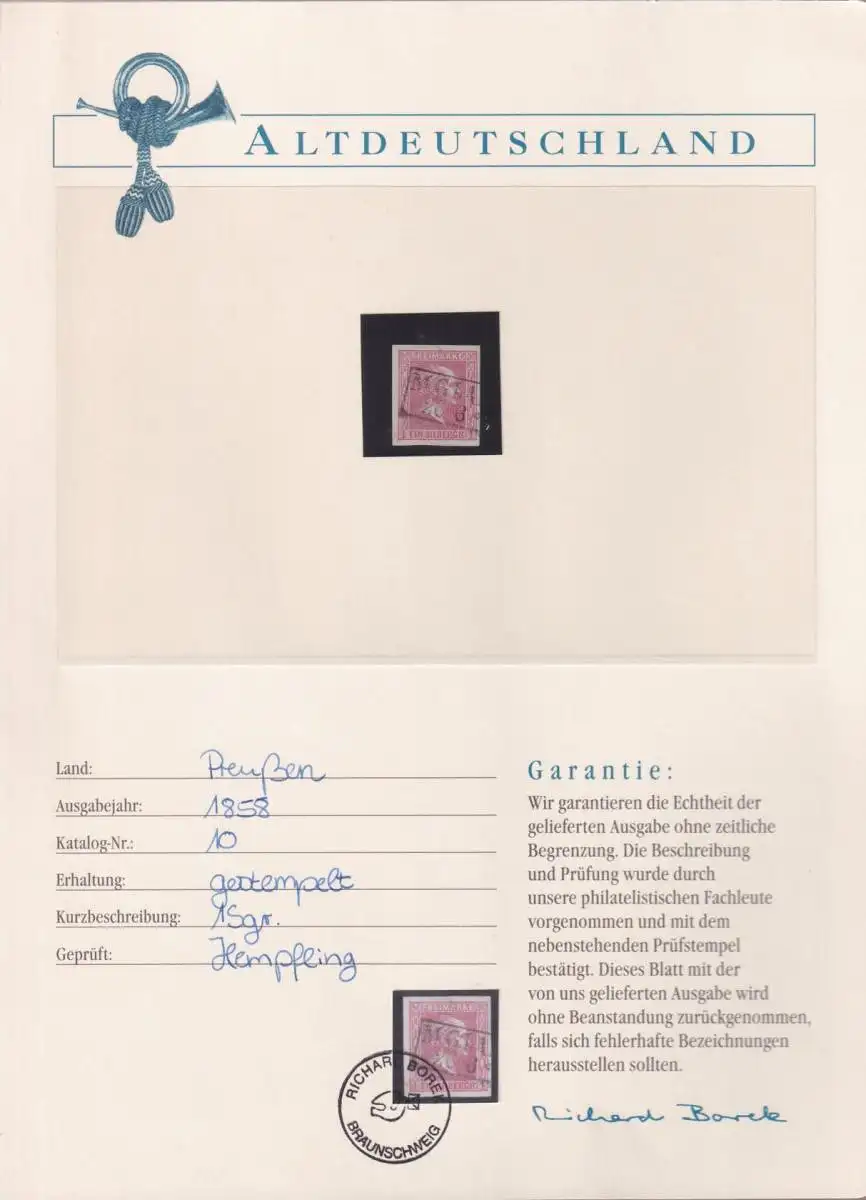 ALTDEUTSCHLAND
FREIMARKE
EIN SILBERGR.
Land: Preußen
Ausgabejahr: 1858
Katalog-Nr.: 10
Erhaltung: gestempelt
Kurzbeschreibung: 1 Sgr.
Geprüft: Hempfling
Garantie:
Wir garantieren die Echtheit der
gelieferten Ausgabe ohne zeitliche
Begrenzung. Die Beschreibung
und Prüfung wurde durch
unsere philatelistischen Fachleute
vorgenommen und mit dem
nebenstehenden Prüfstempel
bestätigt. Dieses Blatt mit der
von uns gelieferten Ausgabe wird
ohne Beanstandung zurückgenommen,
falls sich fehlerhafte Bezeichnungen
herausstellen sollten.
Richard Borek
FREIMARKE
RICHARD BOREK
BRAUNSCHWEIG